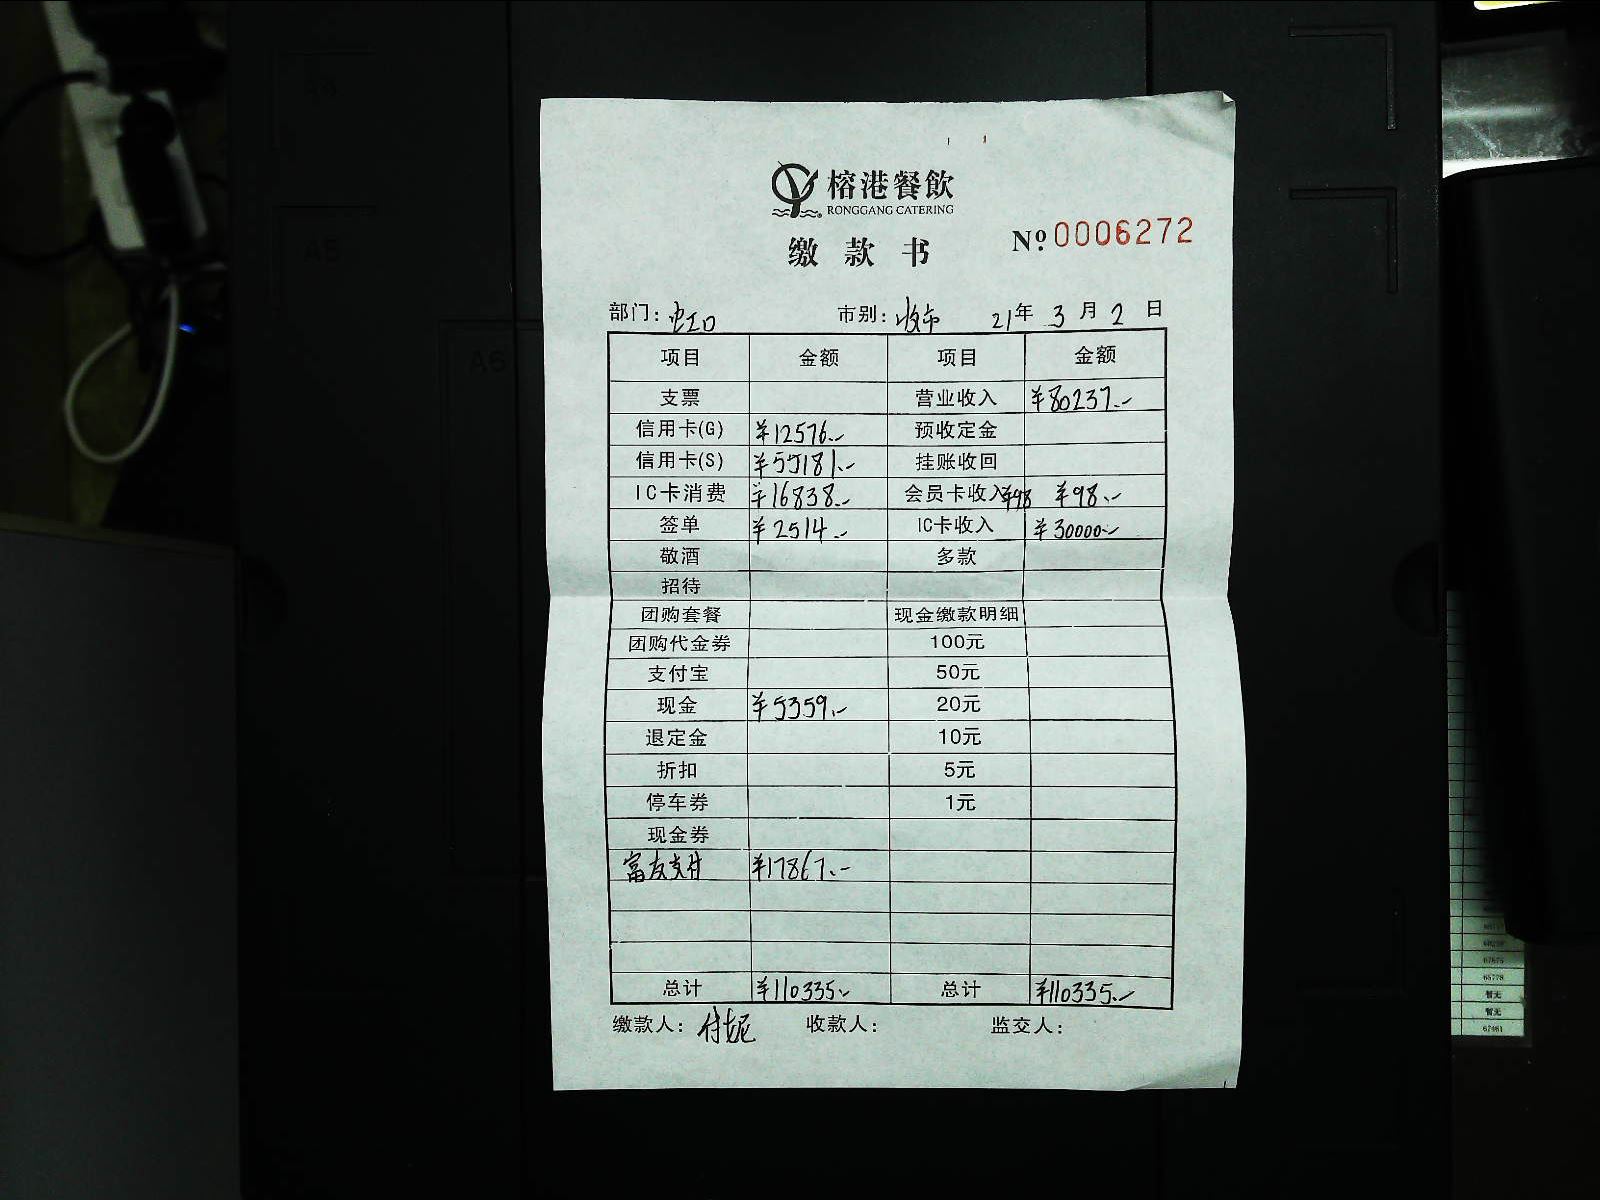 榕港餐飲
RONGGANG CATERING
缴款书
Nº 0006272
部门: 虹口 市别: 收市 21年 3月 2日
项目 金额 项目 金额
支票 营业收入 ¥80237.-
信用卡(G) ¥12576.- 预收定金
信用卡(S) ¥55181.- 挂账收回
IC卡消费 ¥16838.- 会员卡收入 ¥98 ¥98.-
签单 ¥2514.- IC卡收入 ¥30000.-
敬酒 多款
招待
团购套餐 现金缴款明细
团购代金券 100元
支付宝 50元
现金 ¥5359.- 20元
退定金 10元
折扣 5元
停车券 1元
现金券
富友支付 ¥17867.-
总计 ¥110335.- 总计 ¥110335.-
缴款人: 付妮 收款人: 监交人:
A5
A6
67875
65778
暂无
暂无
67461